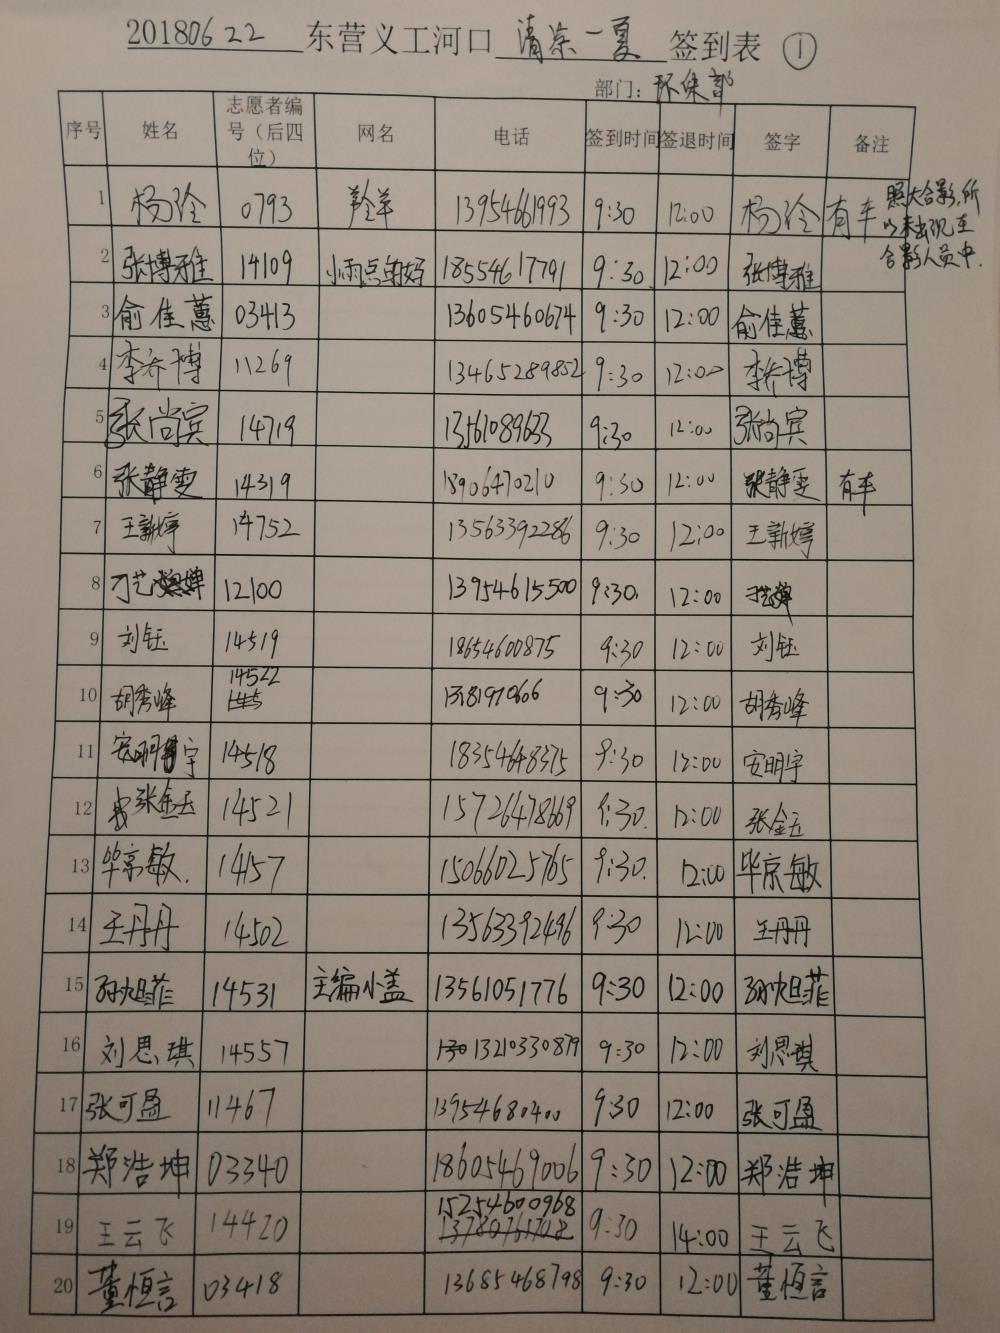 20180622 东营义工河口 清凉一夏 签到表 ①
部门: 环保部
序号 姓名 志愿者编号（后四位） 网名 电话 签到时间 签退时间 签字 备注
1 杨玲 0793 羚羊 13954661993 9:30 12:00 杨玲 有车 照大合影,所以未出现在合影人员中.
2 张博雅 14109 小雨点的好 18554617791 9:30 12:00 张博雅
3 俞佳蕙 03413 13605460674 9:30 12:00 俞佳蕙
4 李乔博 11269 13465289852 9:30 12:00 李乔博
5 张尚宾 14719 13561089633 9:30 12:00 张尚宾
6 张静雯 14319 18906470210 9:30 12:00 张静雯 有车
7 王新婷 14752 13563392286 9:30 12:00 王新婷
8 刁艺婵 12100 13954615500 9:30. 12:00
9 刘钰 14519 18654600875 9:30 12:00 刘钰
10 胡秀峰 14522 1381970666 9:30 12:00 胡秀峰
11 安明宇 14518 18354648375 9:30 12:00 安明宇
12 张金玉 14521 15726478669 9:30. 12:00 张金玉
13 毕京敏. 14457 15066025765 9:30. 12:00 毕京敏
14 王丹丹 14502 13563392496 9:30 12:00 王丹丹
15 孙旭菲 14531 主编小盖 13561051776 9:30 12:00 孙旭菲
16 刘思琪 14557 130 13210330879 9:30 12:00 刘思琪
17 张可盈 11467 13954680400 9:30 12:00 张可盈
18 郑浩坤 03340 18605469006 9:30 12:00 郑浩坤
19 王云飞 14420 15254600968 9:30 14:00 王云飞
20 董恒言 03418 13685468798 9:30 12:00 董恒言